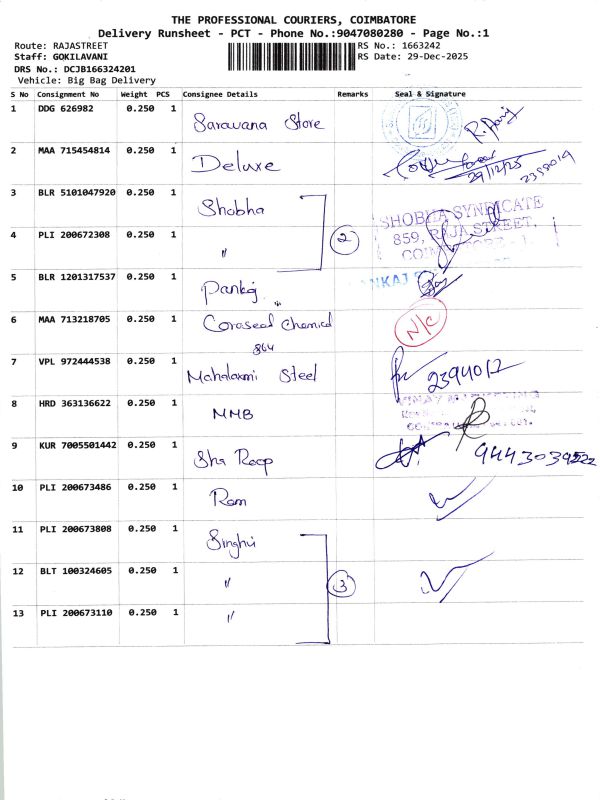 THE PROFESSIONAL COURIERS, COIMBATORE
Delivery Runsheet - PCT - Phone No.:9047080280 - Page No.:1
Route: RAJASTREET
RS No.: 1663242
Staff: GOKILAVANI
RS Date: 29-Dec-2025
DRS No.: DCJB166324201
Vehicle: Big Bag Delivery
S No Consignment No Weight PCS Consignee Details Remarks Seal & Signature
1 DDG 626982 0.250 1 Saravana Store
2 MAA 715454814 0.250 1 Deluxe 29/12/25 2398019
3 BLR 5101047920 0.250 1 Shobha SHOBHA SYNDICATE
859, RAJA STREET,
4 PLI 200672308 0.250 1 〃 2
5 BLR 1201317537 0.250 1 Pankaj
6 MAA 713218705 0.250 1 Coraseal Chemical N/C
864
7 VPL 972444538 0.250 1 Mahalaxmi Steel 2394012
8 HRD 363136622 0.250 1 MMB
9 KUR 7005501442 0.250 1 Sha Roop
10 PLI 200673486 0.250 1 Ram
11 PLI 200673808 0.250 1 Singhvi
12 BLT 100324605 0.250 1 〃 3
13 PLI 200673110 0.250 1 〃